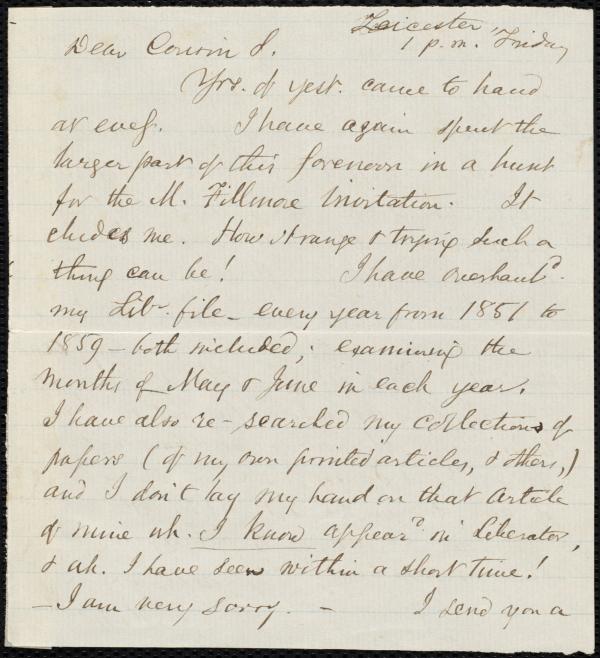 Leicester,
1 p.m. Friday
Dear Cousin S.
Yrs. of yest. came to hand
at eveg. I have again spent the
larger part of this forenoon in a hunt
for the M. Fillmore Invitation. It
eludes me. How strange & trying such a
thing can be! I have overhaul'd
my Lib. file - every year from 1851 to
1859 - both included; examining the
months of May & June in each year.
I have also re-searched my collections of
papers (of my own printed articles, & others,)
and I don't lay my hand on that Article
of mine wh. I know appear'd in Liberator,
& wh. I have seen within a short time!
- I am very sorry. - I send you a